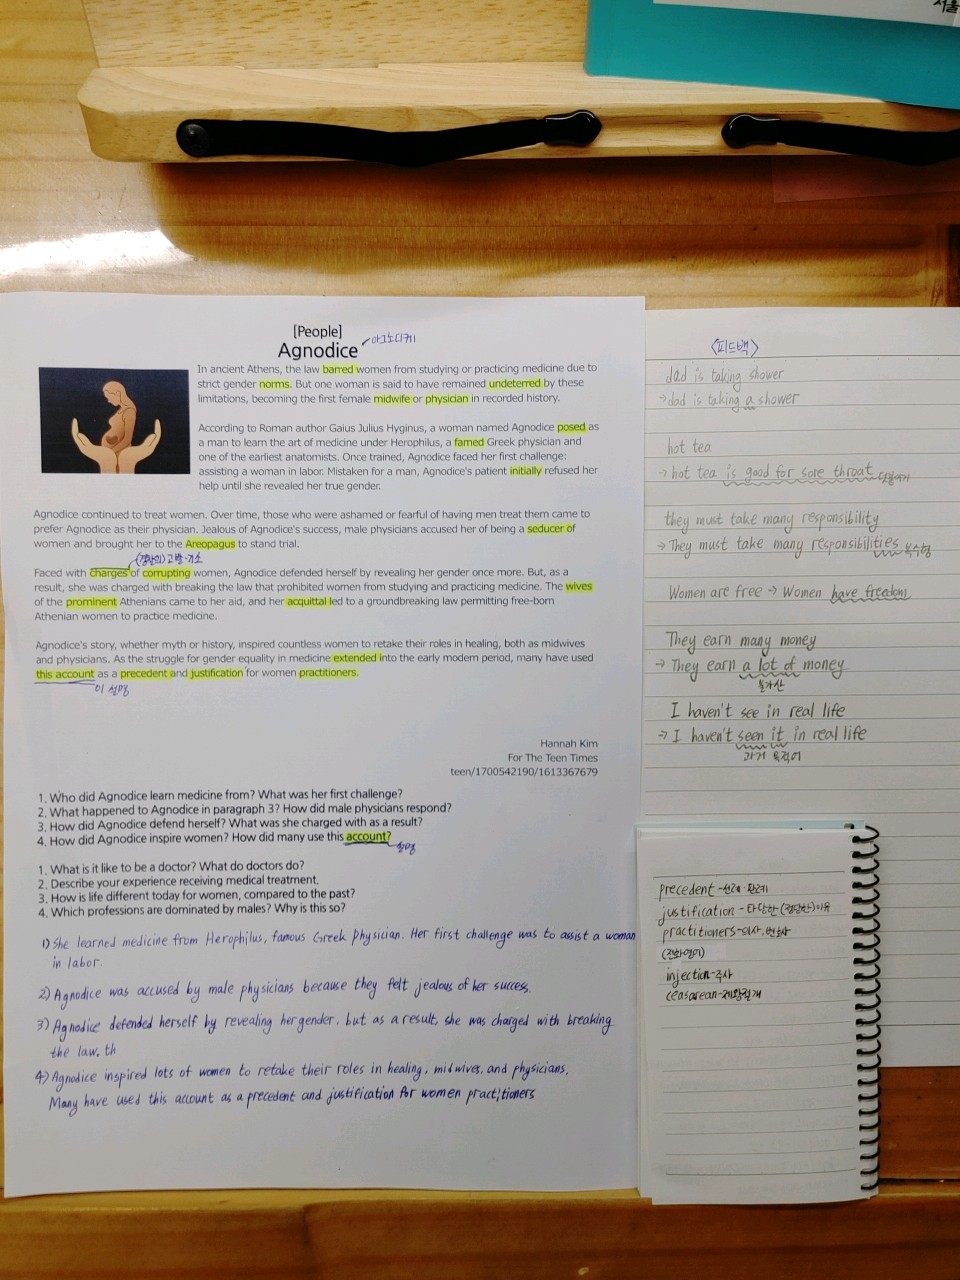 서울
[People]
Agnodice
아그노디케
In ancient Athens, the law barred women from studying or practicing medicine due to
strict gender norms. But one woman is said to have remained undeterred by these
limitations, becoming the first female midwife or physician in recorded history.
According to Roman author Gaius Julius Hyginus, a woman named Agnodice posed as
a man to learn the art of medicine under Herophilus, a famed Greek physician and
one of the earliest anatomists. Once trained, Agnodice faced her first challenge:
assisting a woman in labor. Mistaken for a man, Agnodice's patient initially refused her
help until she revealed her true gender.
Agnodice continued to treat women. Over time, those who were ashamed or fearful of having men treat them came to
prefer Agnodice as their physician. Jealous of Agnodice's success, male physicians accused her of being a seducer of
women and brought her to the Areopagus to stand trial.
고발·기소
Faced with charges of corrupting women, Agnodice defended herself by revealing her gender once more. But, as a
result, she was charged with breaking the law that prohibited women from studying and practicing medicine. The wives
of the prominent Athenians came to her aid, and her acquittal led to a groundbreaking law permitting free-born
Athenian women to practice medicine.
Agnodice's story, whether myth or history, inspired countless women to retake their roles in healing, both as midwives
and physicians. As the struggle for gender equality in medicine extended into the early modern period, many have used
this account as a precedent and justification for women practitioners.
이 설명
Hannah Kim
For The Teen Times
teen/1700542190/1613367679
1. Who did Agnodice learn medicine from? What was her first challenge?
2. What happened to Agnodice in paragraph 3? How did male physicians respond?
3. How did Agnodice defend herself? What was she charged with as a result?
4. How did Agnodice inspire women? How did many use this account?
설명
1. What is it like to be a doctor? What do doctors do?
2. Describe your experience receiving medical treatment.
3. How is life different today for women, compared to the past?
4. Which professions are dominated by males? Why is this so?
1) She learned medicine from Herophilus, famous Greek Physician. Her first challenge was to assist a woman
in labor.
2) Agnodice was accused by male physicians because they felt jealous of her success
3) Agnodice defended herself by revealing her gender. but as a result, she was charged with breaking
the law. th
4) Agnodice inspired lots of women to retake their roles in healing, midwives, and physicians.
Many have used this account as a precedent and justification for women practitioners
<피드백>
dad is taking shower
→ dad is taking a shower
hot tea
→ hot tea is good for sore throat
they must take many responsibility
→ They must take many responsibilities 복수형
Women are free → Women have freedom
They earn many money
→ They earn a lot of money
불가산
I haven't see in real life
→ I haven't seen it in real life
과거 목적어
precedent - 선례·판례
justification - 타당한(정당한)이유
practitioners - 의사, 변호사
injection - 주사
ceasarean - 제왕절개